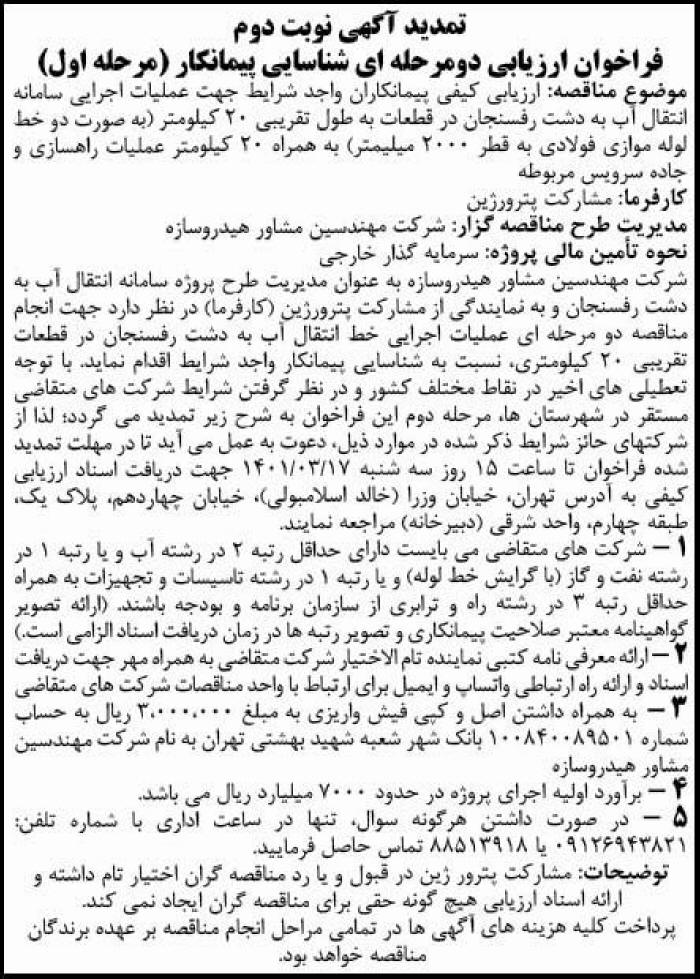 تمدید آگهی نوبت دوم
فراخوان ارزیابی دومرحله ای شناسایی پیمانکار (مرحله اول)
موضوع مناقصه: ارزیابی کیفی پیمانکاران واجد شرایط جهت عملیات اجرایی سامانه
انتقال آب به دشت رفسنجان در قطعات به طول تقریبی ۲۰ کیلومتر (به صورت دو خط
لوله موازی فولادی به قطر ۲۰۰۰ میلیمتر) به همراه ۲۰ کیلومتر عملیات راهسازی و
جاده سرویس مربوطه
کارفرما: مشارکت پترورژین
مدیریت طرح مناقصه گزار: شرکت مهندسین مشاور هیدروسازه
نحوه تأمین مالی پروژه: سرمایه گذار خارجی
شرکت مهندسین مشاور هیدروسازه به عنوان مدیریت طرح پروژه سامانه انتقال آب به
دشت رفسنجان و به نمایندگی از مشارکت پترورژین (کارفرما) در نظر دارد جهت انجام
مناقصه دو مرحله ای عملیات اجرایی خط انتقال آب به دشت رفسنجان در قطعات
تقریبی ۲۰ کیلومتری، نسبت به شناسایی پیمانکار واجد شرایط اقدام نماید. با توجه
تعطیلی های اخیر در نقاط مختلف کشور و در نظر گرفتن شرایط شرکت های متقاضی
مستقر در شهرستان ها، مرحله دوم این فراخوان به شرح زیر تمدید می گردد؛ لذا از
شرکتهای حائز شرایط ذکر شده در موارد ذیل، دعوت به عمل می آید تا در مهلت تمدید
شده فراخوان تا ساعت ۱۵ روز سه شنبه ۱۴۰۱/۰۳/۱۷ جهت دریافت اسناد ارزیابی
کیفی به آدرس تهران، خیابان وزرا (خالد اسلامبولی)، خیابان چهاردهم، پلاک یک،
طبقه چهارم، واحد شرقی (دبیرخانه) مراجعه نمایند.
۱ – شرکت های متقاضی می بایست دارای حداقل رتبه ۲ در رشته آب و یا رتبه ۱ در
رشته نفت و گاز (با گرایش خط لوله) و یا رتبه ۱ در رشته تاسیسات و تجهیزات به همراه
حداقل رتبه ۳ در رشته راه و ترابری از سازمان برنامه و بودجه باشند. (ارائه تصویر
گواهینامه معتبر صلاحیت پیمانکاری و تصویر رتبه ها در زمان دریافت اسناد الزامی است.)
۲ – ارائه معرفی نامه کتبی نماینده تام الاختیار شرکت متقاضی به همراه مهر جهت دریافت
اسناد و ارائه راه ارتباطی واتساپ و ایمیل برای ارتباط با واحد مناقصات شرکت های متقاضی
۳ – به همراه داشتن اصل و کپی فیش واریزی به مبلغ ۳،۰۰۰،۰۰۰ ریال به حساب
شماره ۱۰۰۸۴۰۰۸۹۵۰۱ بانک شهر شعبه شهید بهشتی تهران به نام شرکت مهندسین
مشاور هیدروسازه
۴ – برآورد اولیه اجرای پروژه در حدود ۷۰۰۰ میلیارد ریال می باشد.
۵ – در صورت داشتن هرگونه سوال، تنها در ساعت اداری با شماره تلفن:
۰۹۱۲۶۹۴۳۸۲۱ یا ۸۸۵۱۳۹۱۸ تماس حاصل فرمایید.
توضیحات: مشارکت پترور ژین در قبول و یا رد مناقصه گران اختیار تام داشته و
ارائه اسناد ارزیابی هیچ گونه حقی برای مناقصه گران ایجاد نمی کند.
پرداخت کلیه هزینه های آگهی ها در تمامی مراحل انجام مناقصه بر عهده برندگان
مناقصه خواهد بود.